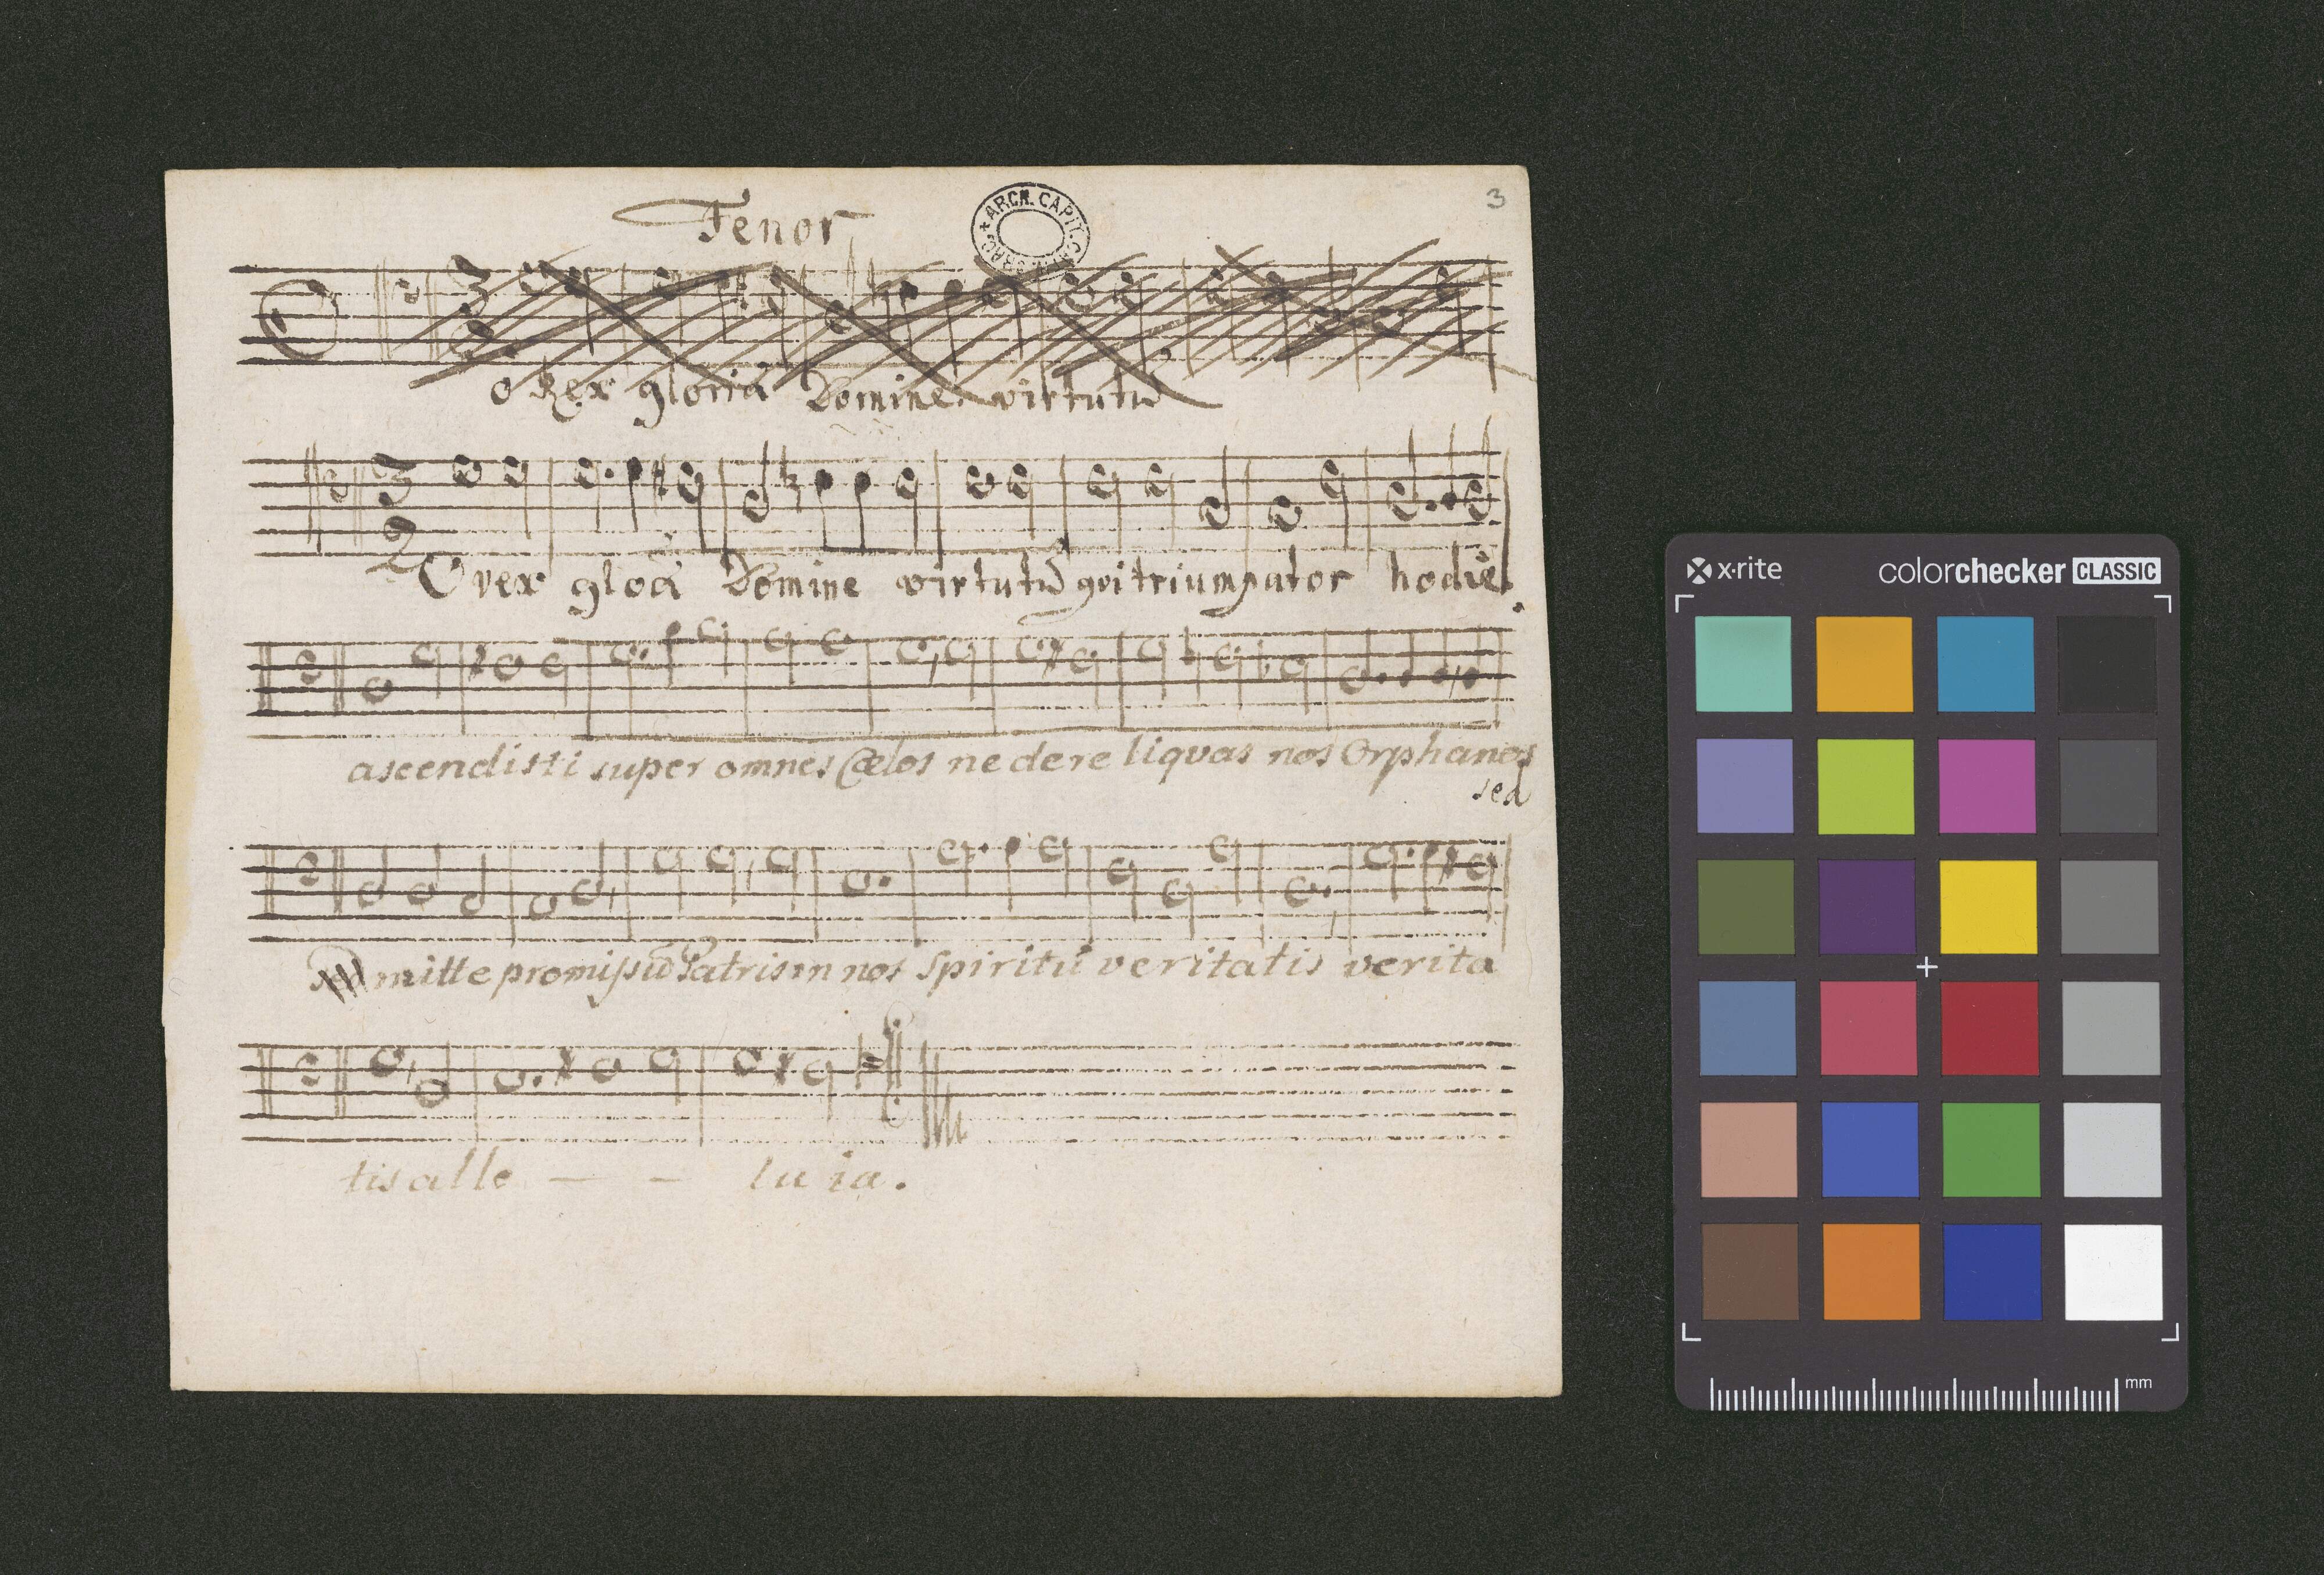 Tenor
3
ARCH. CAPIT.
o Rex gloriá Domine virtutũ
O rex gloá Domine virtutũ qui triumpator hodie
ascendisti super omnes Cœlos ne dere liquas nos Orphanos
sed
mitte promissũ Patris in nos Spiritũ veritatis verita
tis alle — — lu ia.
x·rite colorchecker CLASSIC
mm